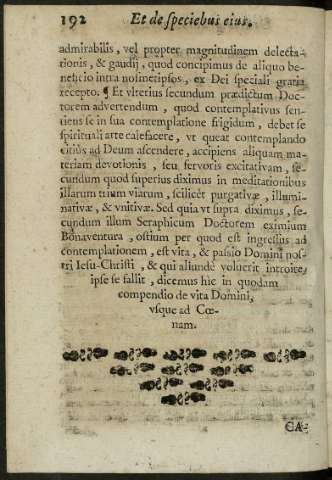 192 Et de speciebus eius.
admirabilis, vel propter magnitudinem delecta-
tionis, & gaudij, quod concipimus de aliquo be-
neficio intra nosmetipsos, ex Dei speciali gratia
recepto. ¶ Et vlterius secundum prædictum Doc-
torem advertendum, quod contemplativus sen-
tiens se in sua contemplatione frigidum, debet se
spirituali arte calefacere, vt queat contemplando
citiùs ad Deum ascendere, accipiens aliquam ma-
teriam devotionis, seu fervoris excitativam, se-
cundum quod superius diximus in meditationibus
illarum trium viarum, scilicèt purgativæ, illumi-
nativæ, & vnitivæ. Sed quia vt supra diximus, se-
cundum illum Seraphicum Doctorem eximium
Bonaventura, ostium per quod est ingressus ad
contemplationem, est vita, & passio Domini nos-
tri Iesu-Christi, & qui aliundè voluerit introire,
ipse se fallit, dicemus hic in quodam
compendio de vita Domini,
vsque ad Cœ-
nam.
CA-